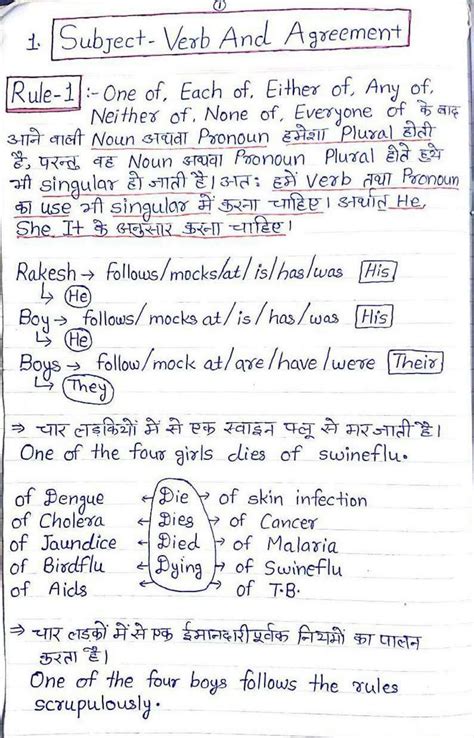 ①
1. Subject-Verb And Agreement
Rule-1 :- One of, Each of, Either of, Any of,
Neither of, None of, Everyone of के बाद
आने वाली Noun अथवा Pronoun हमेशा Plural होती
है, परन्तु वह Noun अथवा Pronoun Plural होते हुये
भी singular हो जाती है। अतः हमें Verb तथा Pronoun
का use भी singular में करना चाहिए। अर्थात् He,
She, It के अनुसार करना चाहिए।
Rakesh → follows/mocks/at/is/has/was His
↳ He
Boy → follows/mocks at/is/has/was His
↳ He
Boys → follow/mock at/are/have/were Their
↳ They
⇒ चार लड़कियों में से एक स्वाइन फ्लू से मर जाती है।
One of the four girls dies of swineflu.
of Dengue ← Die → of skin infection
of Cholera ← Dies → of Cancer
of Jaundice ← Died → of Malaria
of Birdflu ← Dying → of Swineflu
of Aids ← → of T.B.
⇒ चार लडकों में से एक ईमानदारी पूर्वक नियमों का पालन
करता है।
One of the four boys follows the rules
scrupulously.